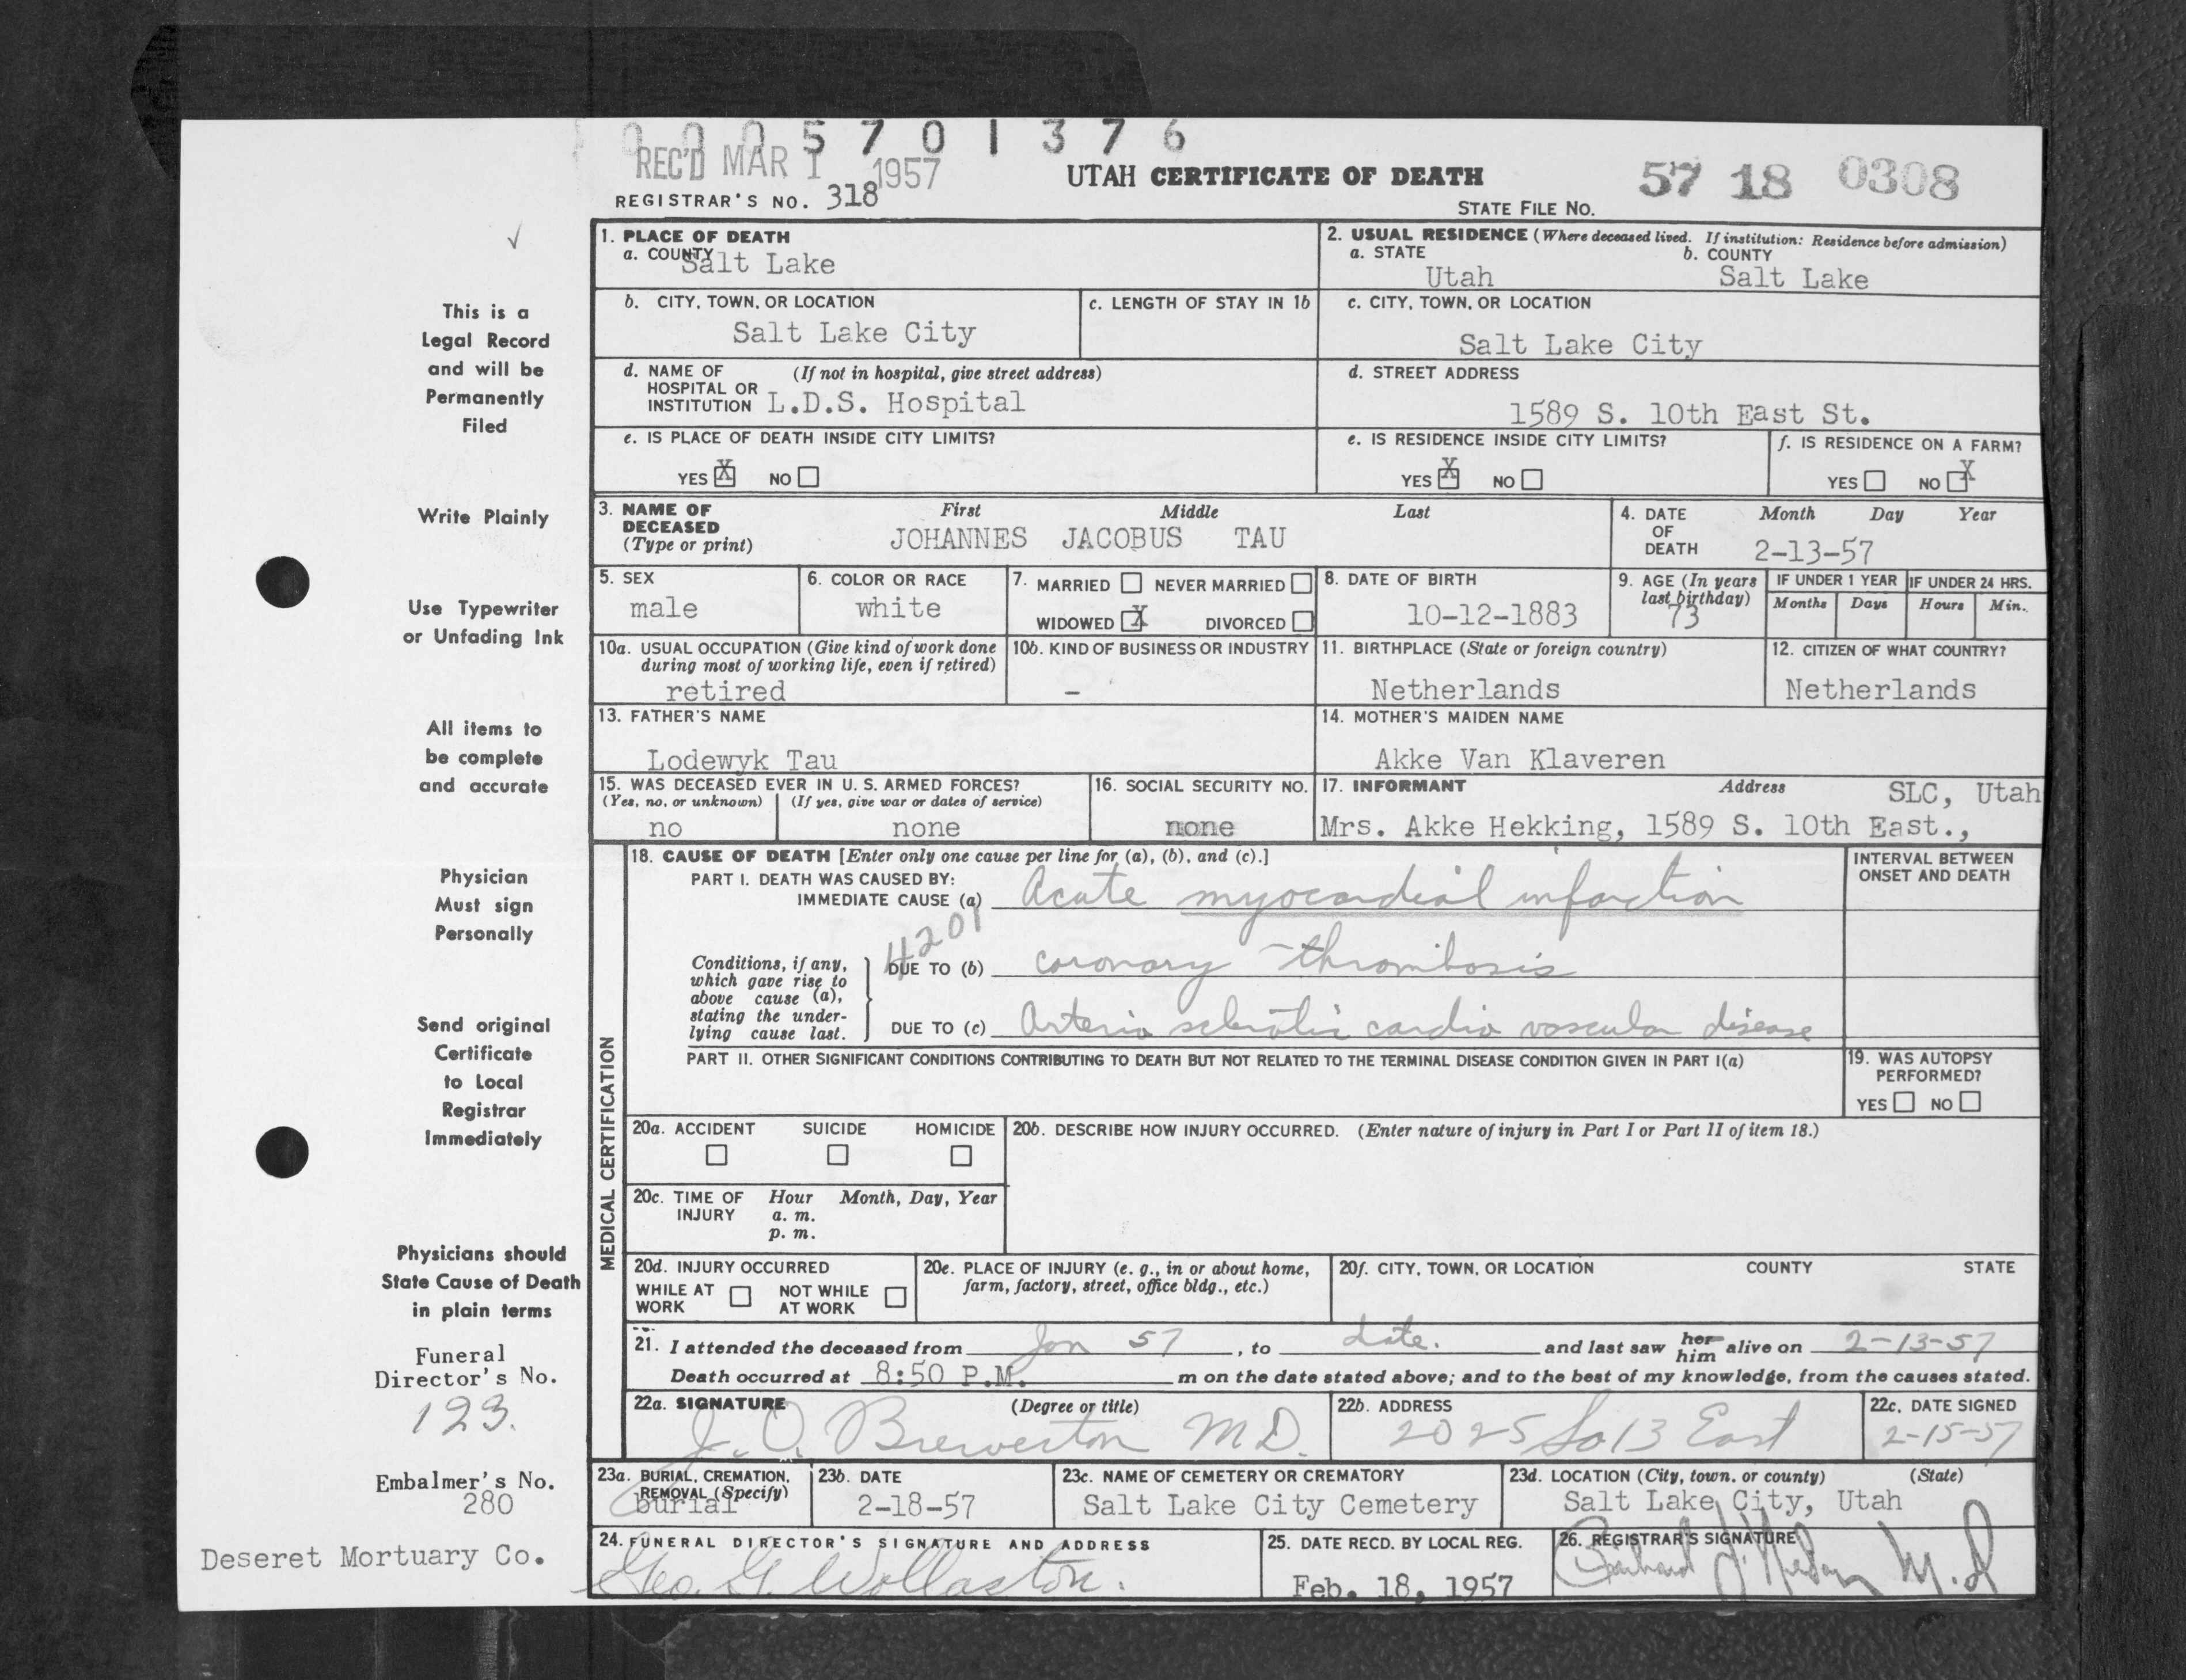 0005701376
REC'D MAR 1 1957
UTAH CERTIFICATE OF DEATH
57 18 0308
REGISTRAR'S NO. 318
STATE FILE NO.
This is a
Legal Record
and will be
Permanently
Filed
Write Plainly
Use Typewriter
or Unfading Ink
All items to
be complete
and accurate
Physician
Must sign
Personally
Send original
Certificate
to Local
Registrar
Immediately
Physicians should
State Cause of Death
in plain terms
Funeral
Director's No.
123.
Embalmer's No.
280
Deseret Mortuary Co.
1. PLACE OF DEATH
a. COUNTY
Salt Lake
2. USUAL RESIDENCE (Where deceased lived. If institution: Residence before admission)
a. STATE b. COUNTY
Utah Salt Lake
b. CITY, TOWN, OR LOCATION
Salt Lake City
c. LENGTH OF STAY IN 1b
c. CITY, TOWN, OR LOCATION
Salt Lake City
d. NAME OF (If not in hospital, give street address)
HOSPITAL OR
INSTITUTION L.D.S. Hospital
d. STREET ADDRESS
1589 S. 10th East St.
e. IS PLACE OF DEATH INSIDE CITY LIMITS?
YES X NO
e. IS RESIDENCE INSIDE CITY LIMITS?
YES X NO
f. IS RESIDENCE ON A FARM?
YES NO X
3. NAME OF First Middle Last
DECEASED
(Type or print) JOHANNES JACOBUS TAU
4. DATE Month Day Year
OF
DEATH 2-13-57
5. SEX
male
6. COLOR OR RACE
white
7. MARRIED NEVER MARRIED
WIDOWED X DIVORCED
8. DATE OF BIRTH
10-12-1883
9. AGE (In years
last birthday)
73
IF UNDER 1 YEAR IF UNDER 24 HRS.
Months Days Hours Min.
10a. USUAL OCCUPATION (Give kind of work done
during most of working life, even if retired)
retired
10b. KIND OF BUSINESS OR INDUSTRY
-
11. BIRTHPLACE (State or foreign country)
Netherlands
12. CITIZEN OF WHAT COUNTRY?
Netherlands
13. FATHER'S NAME
Lodewyk Tau
14. MOTHER'S MAIDEN NAME
Akke Van Klaveren
15. WAS DECEASED EVER IN U. S. ARMED FORCES?
(Yes, no, or unknown) (If yes, give war or dates of service)
no none
16. SOCIAL SECURITY NO.
none
17. INFORMANT Address SLC, Utah
Mrs. Akke Hekking, 1589 S. 10th East.,
MEDICAL CERTIFICATION
18. CAUSE OF DEATH [Enter only one cause per line for (a), (b), and (c).]
PART I. DEATH WAS CAUSED BY:
IMMEDIATE CAUSE (a) Acute myocardial infarction
INTERVAL BETWEEN
ONSET AND DEATH
4201
Conditions, if any,
which gave rise to
above cause (a),
stating the under-
lying cause last.
DUE TO (b) coronary thrombosis
DUE TO (c) Arterio sclerotic cardio vascular disease
PART II. OTHER SIGNIFICANT CONDITIONS CONTRIBUTING TO DEATH BUT NOT RELATED TO THE TERMINAL DISEASE CONDITION GIVEN IN PART I(a)
19. WAS AUTOPSY
PERFORMED?
YES NO
20a. ACCIDENT SUICIDE HOMICIDE
20b. DESCRIBE HOW INJURY OCCURRED. (Enter nature of injury in Part I or Part II of item 18.)
20c. TIME OF Hour Month, Day, Year
INJURY a. m.
p. m.
20d. INJURY OCCURRED
WHILE AT NOT WHILE
WORK AT WORK
20e. PLACE OF INJURY (e. g., in or about home,
farm, factory, street, office bldg., etc.)
20f. CITY, TOWN, OR LOCATION COUNTY STATE
21. I attended the deceased from Jan 57, to date. and last saw her him alive on 2-13-57
Death occurred at 8:50 P.M. m on the date stated above; and to the best of my knowledge, from the causes stated.
22a. SIGNATURE (Degree or title)
J. O. Brewerton M D.
22b. ADDRESS
2025 So 13 East
22c. DATE SIGNED
2-15-57
23a. BURIAL, CREMATION,
REMOVAL (Specify)
burial
23b. DATE
2-18-57
23c. NAME OF CEMETERY OR CREMATORY
Salt Lake City Cemetery
23d. LOCATION (City, town, or county) (State)
Salt Lake City, Utah
24. FUNERAL DIRECTOR'S SIGNATURE AND ADDRESS
Geo. G. Wollaston.
25. DATE RECD. BY LOCAL REG.
Feb. 18, 1957
26. REGISTRAR'S SIGNATURE
M.D